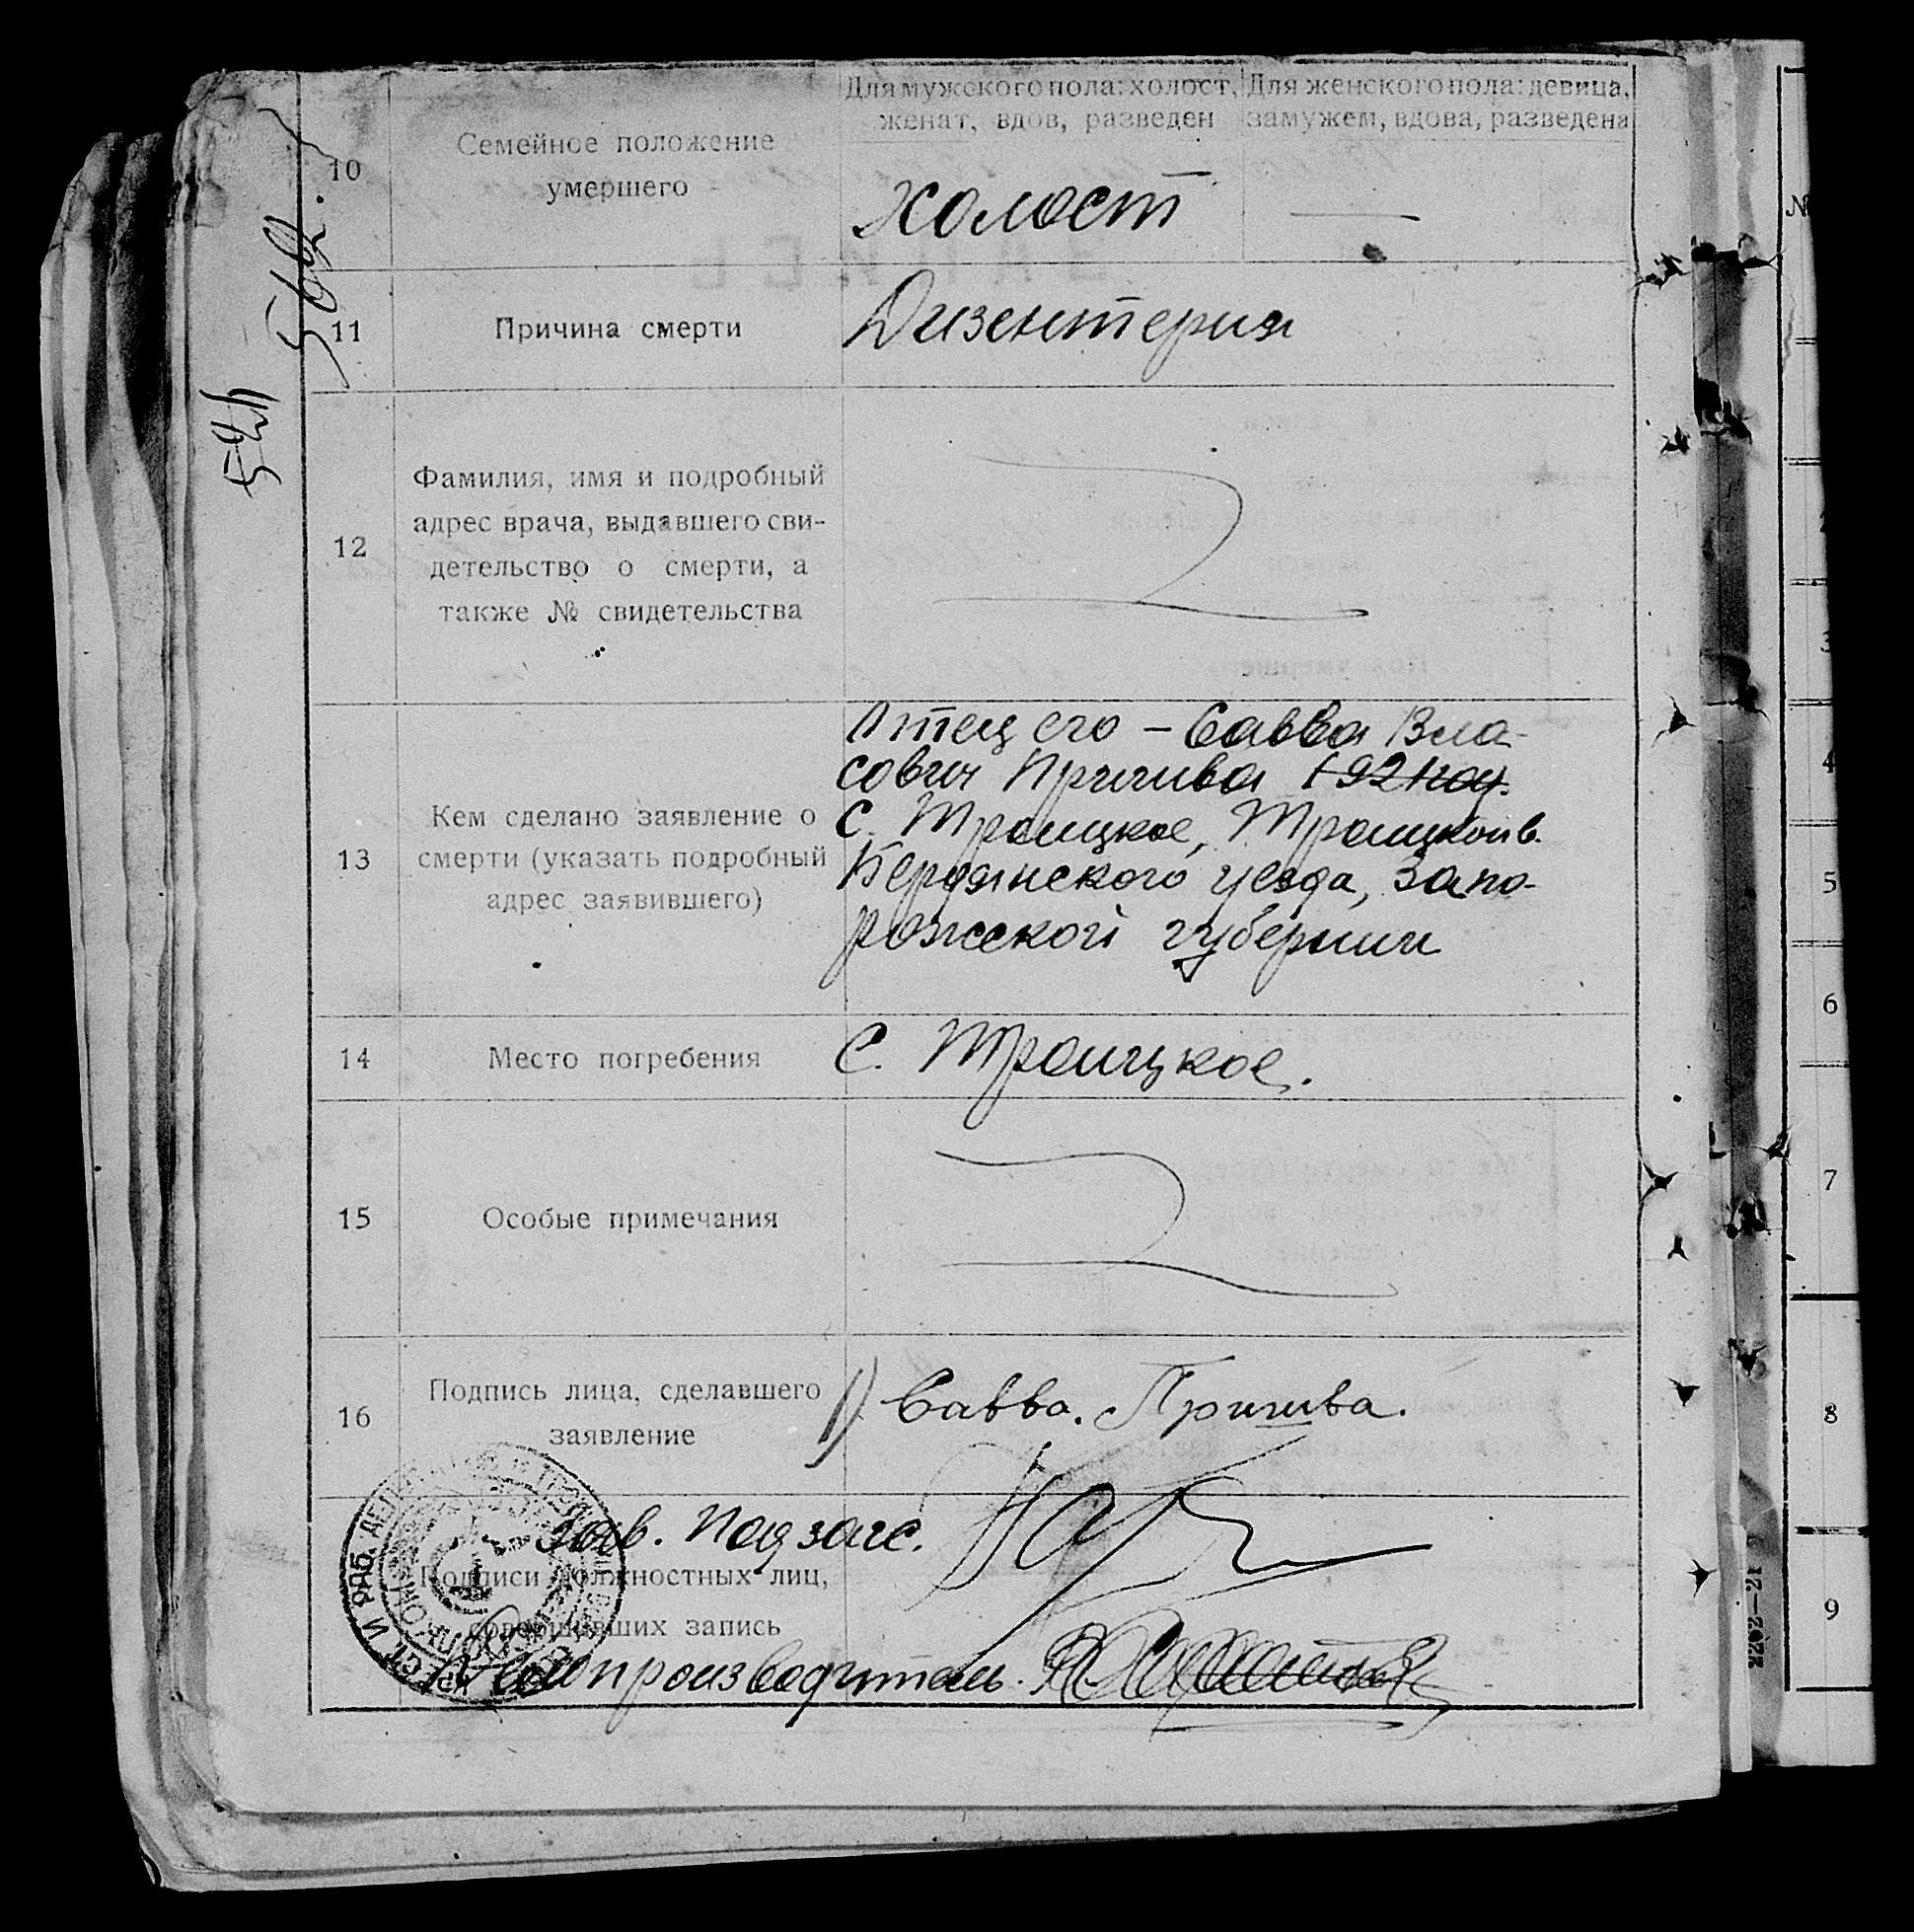 Для мужского пола: холост, женат, вдов, разведен
Для женского пола: девица, замужем, вдова, разведена
10
Семейное положение
умершего
холост
566
524
11
Причина смерти
Дизентерия
12
Фамилия, имя и подробный
адрес врача, выдавшего сви-
детельство о смерти, а
также № свидетельства
13
Кем сделано заявление о
смерти (указать подробный
адрес заявившего)
Отец его – Савва Вла-
сович Причива
с. Троицкое, Троицкой в.
Бердянского уезда, Запо-
рожской губернии
14
Место погребения
С. Троицкое.
15
Особые примечания
16
Подпись лица, сделавшего
заявление
1) Савва. Причива.
Зав. Подзагс.
Подписи должностных лиц,
совершивших запись
Делопроизводитель.
№
4
5
6
7
8
9